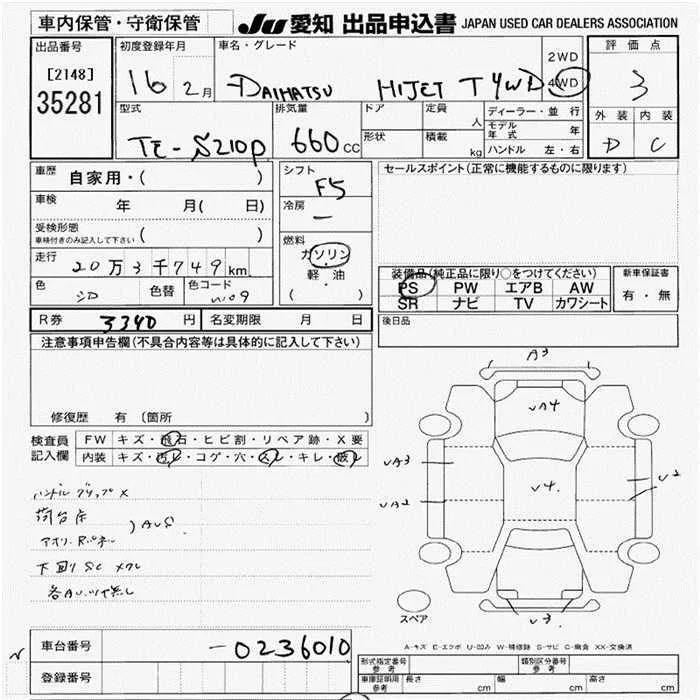 車内保管・守衛保管
Ju 愛知 出品申込書 JAPAN USED CAR DEALERS ASSOCIATION
出品番号
[2148]
35281
初度登録年月
16 2月
車名・グレード
DAIHATSU HIJET T 4WD
2WD
4WD
評価点
3
外装 内装
D C
型式
TE-S210P
排気量
660 CC
ドア
形状
定員 人
積載 kg
ディーラー・並行
モデル年式 年
ハンドル 左・右
車歴
自家用・( )
車検 年 月( 日)
受検形態
車検付きのみ記入して下さい ( )
走行
20万3千749km
色 シロ 色替 色コード W09
シフト
F5
冷房
―
燃料
ガソリン
軽・油
( )
セールスポイント(正常に機能するものに限ります)
装備品(純正品に限り○をつけてください)
PS PW エアB AW
SR ナビ TV カワシート
新車保証書
有・無
後日品
R券 3340 円 名変期限 月 日
注意事項申告欄(不具合内容等は具体的に記入して下さい)
修復歴 有 (箇所 )
検査員記入欄
FW キズ・飛石・ヒビ割・リペア跡・X要
内装 キズ・汚レ・コゲ・穴・スレ・キレ・破レ
ハンドル グリップ X
荷台床
アオリ
AUS
下回り SC
A3
UA4
UA3
U4.
U2
UA2
U3.
スペア
A-キズ E-エクボ U-凹み W-補修跡 S-サビ C-腐食 XX-交換済
車台番号 -0236010
登録番号
型式指定番号 参考
類別区分番号 参考
車庫証明用 参考 長さ cm 幅 cm 高さ cm